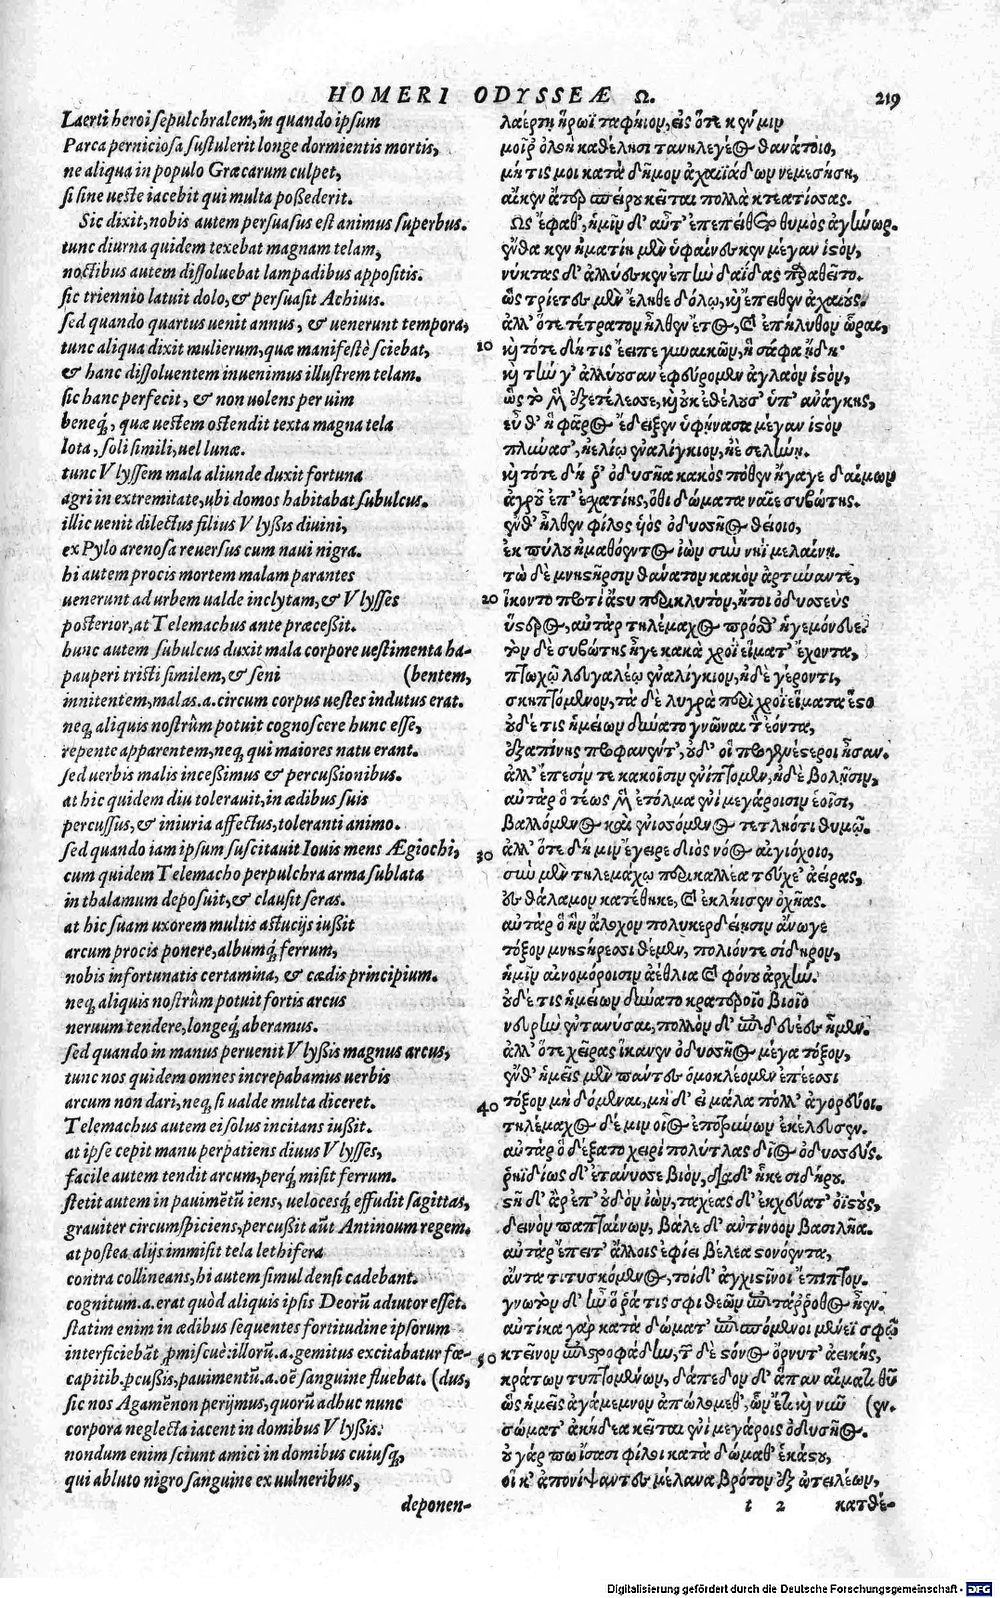 HOMERI ODYSSEÆ Ω. 219
Laerti heroi sepulchralem, in quando ipsum
Parca perniciosa sustulerit longe dormientis mortis,
ne aliqua in populo Græcarum culpet,
si sine ueste iacebit qui multa poßederit.
Sic dixit, nobis autem persuasus est animus superbus.
tunc diurna quidem texebat magnam telam,
noctibus autem dissoluebat lampadibus appositis.
sic triennio latuit dolo, & persuasit Achiuis.
sed quando quartus uenit annus, & uenerunt tempora,
tunc aliqua dixit mulierum, quæ manifestè sciebat,
& hanc dissoluentem inuenimus illustrem telam.
sic hanc perfecit, & non uolens per uim
beneq́;, quæ uestem ostendit texta magna tela
lota, soli simili, uel lunæ.
tunc Vlyssem mala aliunde duxit fortuna
agri in extremitate, ubi domos habitabat subulcus.
illic uenit dilectus filius Vlyßis diuini,
ex Pylo arenosa reuersus cum naui nigra.
hi autem procis mortem malam parantes
uenerunt ad urbem ualde inclytam, & Vlysses
posterior, at Telemachus ante præceßit.
hunc autem subulcus duxit mala corpore uestimenta ha-
pauperi tristi similem, & seni (bentem,
innitentem, malas .a. circum corpus uestes indutus erat.
neq; aliquis nostrûm potuit cognoscere hunc esse,
repente apparentem, neq; qui maiores natu erant.
sed uerbis malis inceßimus & percußionibus.
at hic quidem diu tolerauit, in ædibus suis
percussus, & iniuria affectus, toleranti animo.
sed quando iam ipsum suscitauit Iouis mens Ægiochi,
cum quidem Telemacho perpulchra arma sublata
in thalamum deposuit, & clausit seras.
at hic suam uxorem multis astucijs iußit
arcum procis ponere, albumq́; ferrum,
nobis infortunatis certamina, & cædis principium.
neq; aliquis nostrûm potuit fortis arcus
neruum tendere, longeq́; aberamus.
sed quando in manus peruenit Vlyßis magnus arcus,
tunc nos quidem omnes increpabamus uerbis
arcum non dari, neq; si ualde multa diceret.
Telemachus autem ei solus incitans iußit.
at ipse cepit manu perpatiens diuus Vlysses,
facile autem tendit arcum, perq́; misit ferrum.
stetit autem in pauimẽtũ iens, uelocesq́; effudit sagittas,
grauiter circumspiciens, percußit aũt Antinoum regem.
at postea alijs immisit tela lethifera
contra collineans, hi autem simul densi cadebant.
cognitum .a. erat quòd aliquis ipsis Deorũ adiutor esset.
statim enim in ædibus sequentes fortitudine ipsorum
interficiebãt ꝓmiscuè: illorũ .a. gemitus excitabatur fœ-
capitib. ꝑcußis, pauimentũ .a. oẽ sanguine fluebat. (dus,
sic nos Agamẽnon perijmus, quorũ adhuc nunc
corpora neglecta iacent in domibus Vlyßis.
nondum enim sciunt amici in domibus cuiusq;,
qui abluto nigro sanguine ex uulneribus,
deponen-
λαέρτῃ ἥρωϊ ταφήϊον, εἰς ὅτε κεν μιν
μοῖρ' ὀλοὴ καθέλῃσι τανηλεγέος θανάτοιο,
μή τις μοι κατὰ δῆμον ἀχαιϊάδων νεμεσήσῃ,
αἴκεν ἄτερ σπείρου κεῖται πολλὰ κτεατίσσας.
Ως ἔφαθ', ἡμῖν δ' αὖτ' ἐπεπείθετο θυμὸς ἀγήνωρ.
ἔνθα κεν ἠματίη μὲν ὑφαίνεσκεν μέγαν ἱστόν,
νύκτας δ' ἀλλύεσκεν ἐπὴν δαΐδας παραθεῖτο.
ὣς τρίετες μὲν ἔληθε δόλῳ, καὶ ἔπειθεν ἀχαιούς.
ἀλλ' ὅτε τέτρατον ἦλθεν ἔτος, καὶ ἐπήλυθον ὧραι,
10 καὶ τότε δή τις ἔειπε γυναικῶν, ἣ σάφα ᾔδη·
καὶ τήν γ' ἀλλύουσαν ἐφεύρομεν ἀγλαὸν ἱστόν,
ὣς τὸ μὲν ἐξετέλεσσε, καὶ οὐκ ἐθέλουσ' ὑπ' ἀνάγκης,
εὖθ' ἡ φᾶρος ἔδειξεν ὑφήνασα μέγαν ἱστὸν
πλύνασ', ἠελίῳ ἐναλίγκιον, ἠὲ σελήνῃ.
καὶ τότε δή ῥ' ὀδυσῆα κακὸς ποθεν ἤγαγε δαίμων
ἀγροῦ ἐπ' ἐσχατίης, ὅθι δώματα ναῖε συβώτης.
ἔνθ' ἦλθεν φίλος υἱὸς ὀδυσσῆος θείοιο,
ἐκ πύλου ἠμαθόεντος ἰὼν σὺν νηῒ μελαίνῃ.
τὼ δὲ μνηστῆρσιν θάνατον κακὸν ἀρτύναντε,
20 ἵκοντο προτὶ ἄστυ περικλυτόν, ἤτοι ὀδυσσεὺς
ὕστερος, αὐτὰρ τηλέμαχος πρόσθ' ἡγεμόνευε.
τὸν δὲ συβώτης ἦγε κακὰ χροῒ εἵματ' ἔχοντα,
πτωχῷ λευγαλέῳ ἐναλίγκιον, ἠδὲ γέροντι,
σκηπτόμενον, τὰ δὲ λυγρὰ περὶ χροῒ εἵματα ἕστο
οὐδέ τις ἡμείων δύνατο γνῶναι τὸν ἐόντα,
ἐξαπίνης προφανέντ', οὐδ' οἳ προγενέστεροι ἦσαν.
ἀλλ' ἔπεσίν τε κακοῖσιν ἐνίπτομεν, ἠδὲ βολῇσιν,
αὐτὰρ ὃ τέως μὲν ἐτόλμα ἐνὶ μεγάροισιν ἑοῖσι,
βαλλόμενος καὶ ἐνισσόμενος τετληότι θυμῷ.
30 ἀλλ' ὅτε δή μιν ἔγειρε διὸς νόος αἰγιόχοιο,
σὺν μὲν τηλεμάχῳ περικαλλέα τεύχε' ἀείρας,
ἐς θάλαμον κατέθηκε, καὶ ἐκλήισεν ὀχῆας.
αὐτὰρ ὃ ἣν ἄλοχον πολυκερδείῃσιν ἄνωγε
τόξον μνηστήρεσσι θέμεν, πολιόν τε σίδηρον,
ἡμῖν αἰνομόροισιν ἀέθλια καὶ φόνου ἀρχήν.
οὐδέ τις ἡμείων δύνατο κρατεροῖο βιοῖο
νευρὴν ἐντανύσαι, πολλὸν δ' ἐπιδευέες ἦμεν.
ἀλλ' ὅτε χεῖρας ἵκανεν ὀδυσσῆος μέγα τόξον,
ἔνθ' ἡμεῖς μὲν πάντες ὁμοκλέομεν ἐπέεσσι
40 τόξον μὴ δόμεναι, μηδ' εἰ μάλα πολλ' ἀγορεύοι.
τηλέμαχος δέ μιν οἶος ἐποτρύνων ἐκέλευσεν.
αὐτὰρ ὃ δέξατο χειρὶ πολύτλας δῖος ὀδυσσεύς.
ῥηϊδίως δ' ἐτάνυσσε βιόν, διὰ δ' ἧκε σιδήρου.
στῆ δ' ἄρ' ἐπ' οὐδὸν ἰών, ταχέας δ' ἐκχεύατ' ὀϊστούς,
δεινὸν παπταίνων, βάλε δ' αὐτίνοον βασιλῆα.
αὐτὰρ ἔπειτ' ἄλλοις ἐφίει βέλεα στονόεντα,
ἄντα τιτυσκόμενος, τοὶ δ' ἀγχιστῖνοι ἔπιπτον.
γνωτὸν δ' ἦν ὅ ῥά τις σφι θεῶν ἐπιτάρροθος ἦεν.
αὐτίκα γὰρ κατὰ δώματ' ἐπισπόμενοι μένεϊ σφῷ
50 κτεῖνον ἐπιστροφάδην, τῶν δὲ στόνος ὄρνυτ' ἀεικής,
κράτων τυπτομένων, δάπεδον δ' ἅπαν αἵματι θῦ
ὣς ἡμεῖς ἀγάμεμνον ἀπωλόμεθ', ὧν ἔτι καὶ νῦν (εν.
σώματ' ἀκηδέα κεῖται ἐνὶ μεγάροις ὀδυσῆος.
οὐ γάρ πω ἴσασι φίλοι κατὰ δώμαθ' ἑκάστου,
οἵ κ' ἀπονίψαντες μέλανα βρότον ἐξ ὠτειλέων,
t 2 κατθέ-
Digitalisierung gefördert durch die Deutsche Forschungsgemeinschaft - DFG